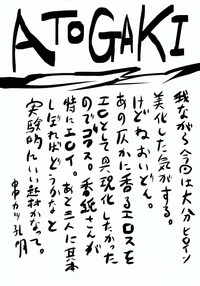 ATOGAKI
我ながら今回は大分ヒロイン
美化した気がする。
けどねおいどん。
あの仄かに香るエロスを
エロとして具現化したかった
のでゴワス。香紙さんが
特にエロイ。あと三人に基本
しぼればどうなるかなと
実験的にいい題材かなって。
串カツ孔明